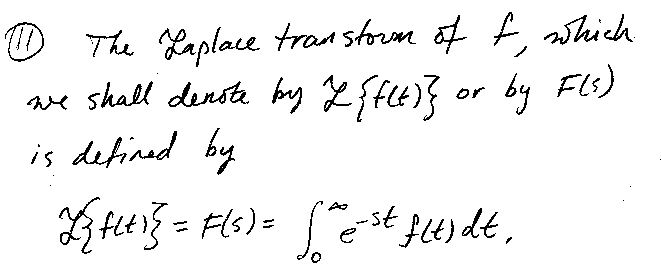 ⑪ The Laplace transform of f, which
we shall denote by ℒ{f(t)} or by F(s)
is defined by
ℒ{f(t)} = F(s) = ∫₀^∞ e^{-st} f(t) dt.